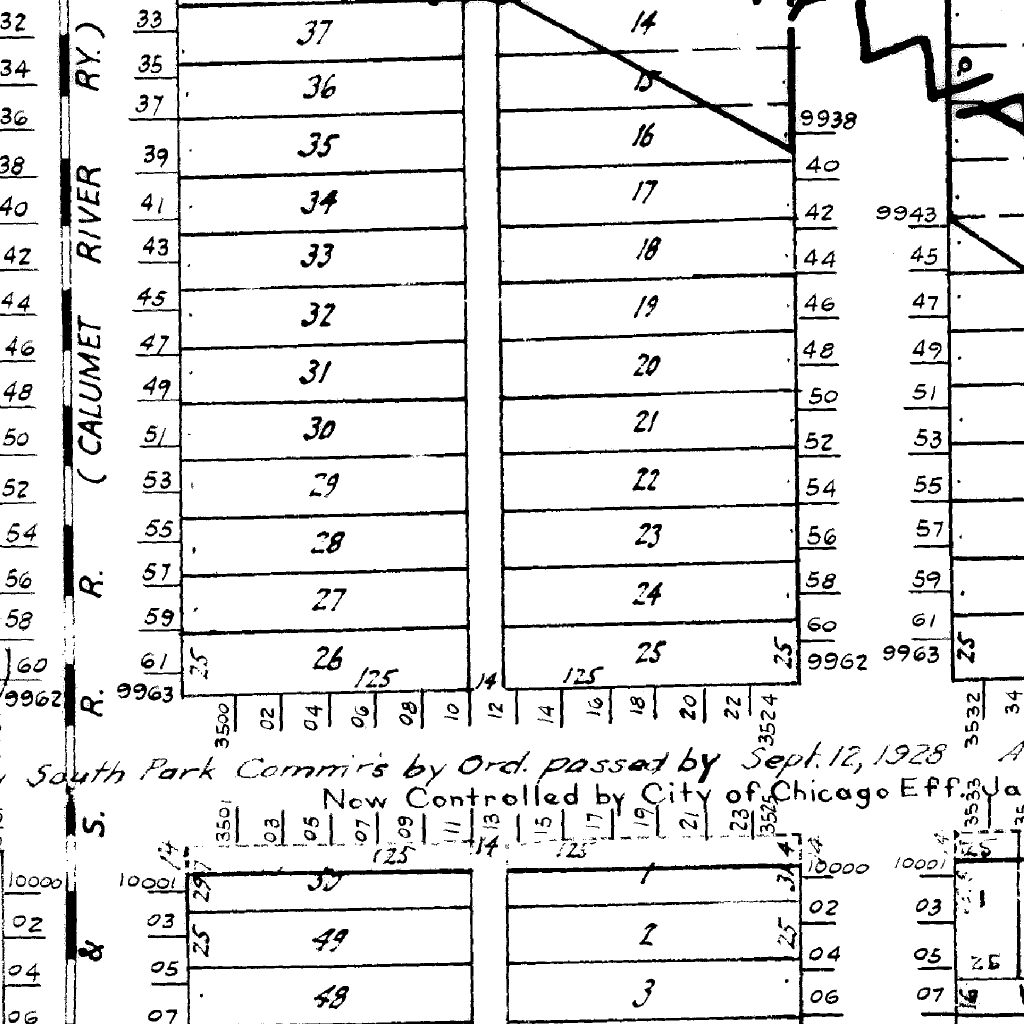 32 33 37 14
34 35 36 15
36 37 35 16 9938
38 39 34 17 40
40 41 33 18 42 9943
42 43 32 19 44 45
44 45 31 20 46 47
46 47 30 21 48 49
48 49 29 22 50 51
50 51 28 23 52 53
52 53 27 24 54 55
54 55 26 25 56 57
56 57 58 59
58 59 60 61
60 61 25 125 14 125 25 9962 9963 25
9962 9963
3500 02 04 06 08 10 12 14 16 18 20 22 3524 3532 34
South Park Comm'rs by Ord. passed by Sept. 12, 1928 A
Now Controlled by City of Chicago Eff. Ja
3501 03 05 07 09 11 13 15 17 19 21 23 3525 3533
14 125 14 125 14
10000 10001 1 10000 10001 1
02 03 49 2 02 03
25 25 25
04 05 48 3 04 05
06 07 06 07 16
( CALUMET RIVER RY. )
R. R. & S.